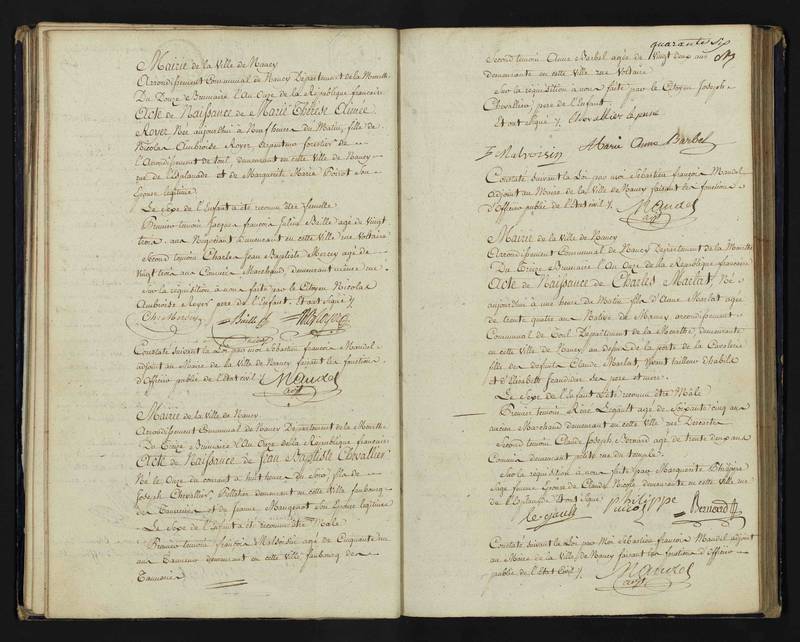 Mairie de la Ville de Nancy
Arrondissement Communal de Nancy Département de la Meurthe
Du Douze Brumaire l'An Onze de la République francaise
Acte de Naissance de Marie Thérèse Aimée
Royer Née aujourd'hui à Neuf heures du Matin, fille de
Nicolas Ambroise Royer, forestier de
l'Arrondissement de Toul, demeurant en cette Ville de Nancy
rue de l'Esplanade et de Marguerite Marie Poirot son
Epouse légitime
Le Sexe de l'Enfant a été reconnu être femelle
Premier temoin Jacques francois Julien Beille agé de Vingt
trois ans Négociant demeurant en cette Ville rue Voltaire
Second temoin Charles Jean Baptiste Mercy agé de
Vingt trois ans Commis Marchand, demeurant même rue
Sur la réquisition à nous faite par le Citoyen Nicolas
Ambroise Royer père de l'Enfant. Et ont Signé
Ch. Mercy Beille
Constaté suivant la Loi par moi Sébastien francois Mandel
adjoint au Maire de la Ville de Nancy faisant les fonctions
d'Officier public de l'Etat civil Mandel
adjt
Mairie de la Ville de Nancy
Arrondissement Communal de Nancy Département de la Meurthe
Du Treize Brumaire l'An Onze de la République francaise
Acte de Naissance de Jean Baptiste Chevallier
Né le Onze du courant à huit heures du Soir, fils de
Joseph Chevallier, Pelletier demeurant en cette Ville faubourg
des Tanneries et de Jeanne Mangenot Son Epouse légitime
Le Sexe de l'Enfant a été reconnu être Mâle
Premier temoin francois Malvoisin agé de Cinquante un
ans Tanneur demeurant en cette Ville faubourg des
Tanneries
quarante six
Second temoin Anne Barbel agée de Vingt deux ans
demeurante en cette Ville rue Voltaire
Sur la réquisition à nous faite par le Citoyen Joseph
Chevallier, père de l'Enfant.
Et ont Signé Chevallier
Malvoisin Marie Anne Barbel
Constaté suivant la Loi par moi Sébastien francois Mandel
adjoint au Maire de la Ville de Nancy faisant les fonctions
d'Officier public de l'Etat civil Mandel
adjt
Mairie de la Ville de Nancy
Arrondissement Communal de Nancy Département de la Meurthe
Du Treize Brumaire l'An Onze de la République francaise
Acte de Naissance de Charles Marlat, Né
aujourd'hui à une heure du Matin fils d'Anne Marlat agée
de trente quatre ans Native de arrondissement
Communal de Toul Département de la Meurthe, demeurante
en cette Ville de Nancy, au dessus de la porte de la Cavalerie
fille de defunts Claude Marlat, Vivant tailleur d'habits
et d'Elisabeth ses père et mère.
Le Sexe de l'Enfant a été reconnu être Mâle
Premier temoin René Legault agé de Soixante cinq ans
ancien Marchand demeurant en cette Ville rue Descartes
Second temoin Claude Joseph Bernard agé de trente deux ans
Commis demeurant petite rue du temple
Sur la réquisition à nous faite par Marguerite Philippe
Sage femme Epouse de Claude Nicole demeurante en cette Ville rue
de l'Esplanade Et ont Signé Philippe
legault Nicole Bernard
Constaté suivant la Loi par Moi Sébastien francois Mandel adjoint
au Maire de la Ville de Nancy faisant les fonctions d'Officier
public de l'Etat Civil Mandel
adjt